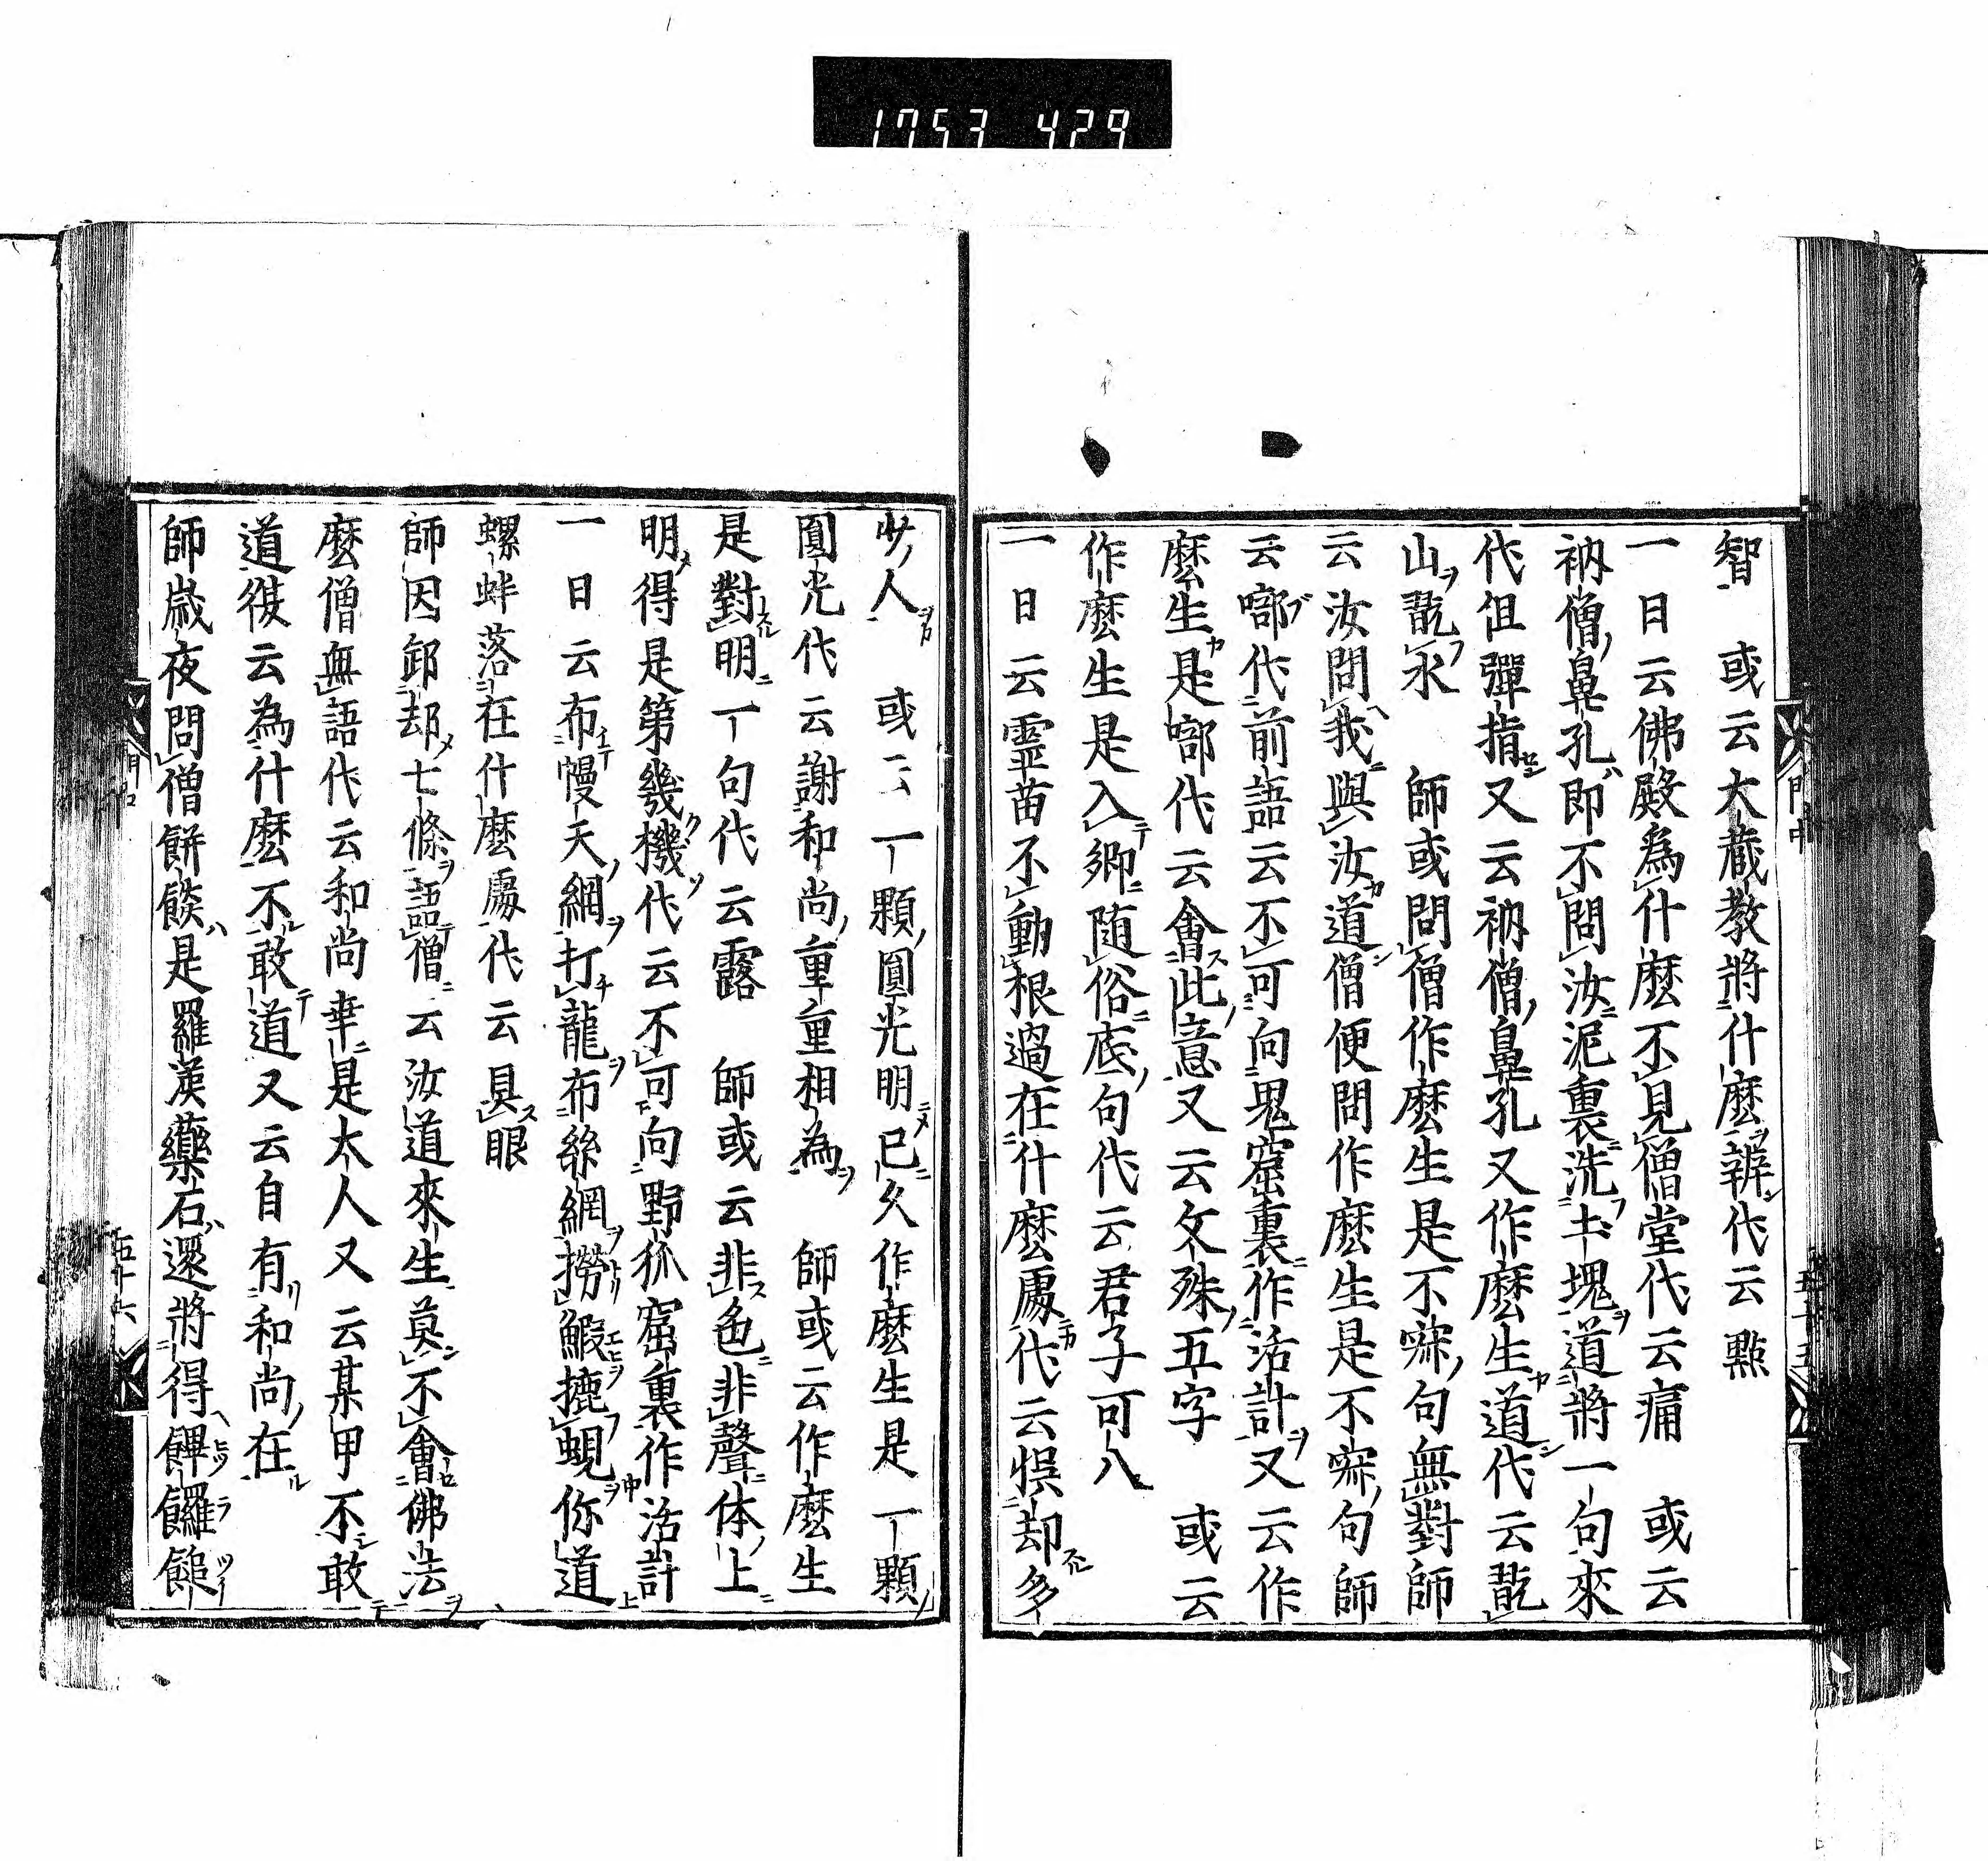 1753 429
智 或云大藏教將什麼辨代云點
一日云佛殿為什麼不見僧堂代云痛 或云
衲僧鼻孔即不問汝泥裏洗土塊道將一句來
代但彈指又云衲僧鼻孔又作麼生道代云㲉
山㲉永 師或問僧作麼生是不寐句無對師
云汝問我與汝道僧便問作麼生是不寐句師
云㗻代前語云不可向鬼窟裏作活計又云作
麼生是㗻代云會此意又云文殊五字 或云
作麼生是入鄉随俗底句代云君子可八
一日云霊苗不動根過在什麼處代云悮却多
少人 或云一顆圓光明已久作麼生是一顆
圓光代云謝和尚重重相為 師或云作麼生
是對明一句代云露 師或云非色非聲体上
明得是第幾機代云不可向野狐窟裏作活計
一日云布幔天網打龍布絲網撈鰕摝蜆你道
螺蚌落在什麼處代云具眼
師因卸却七條語僧云汝道來生莫不會佛法
麼僧無語代云和尚幸是大人又云某甲不敢
道復云為什麼不敢道又云自有和尚在
師歲夜問僧餅餤是羅漢藥石還將得饆饠䭔
門中
五十五
五十六